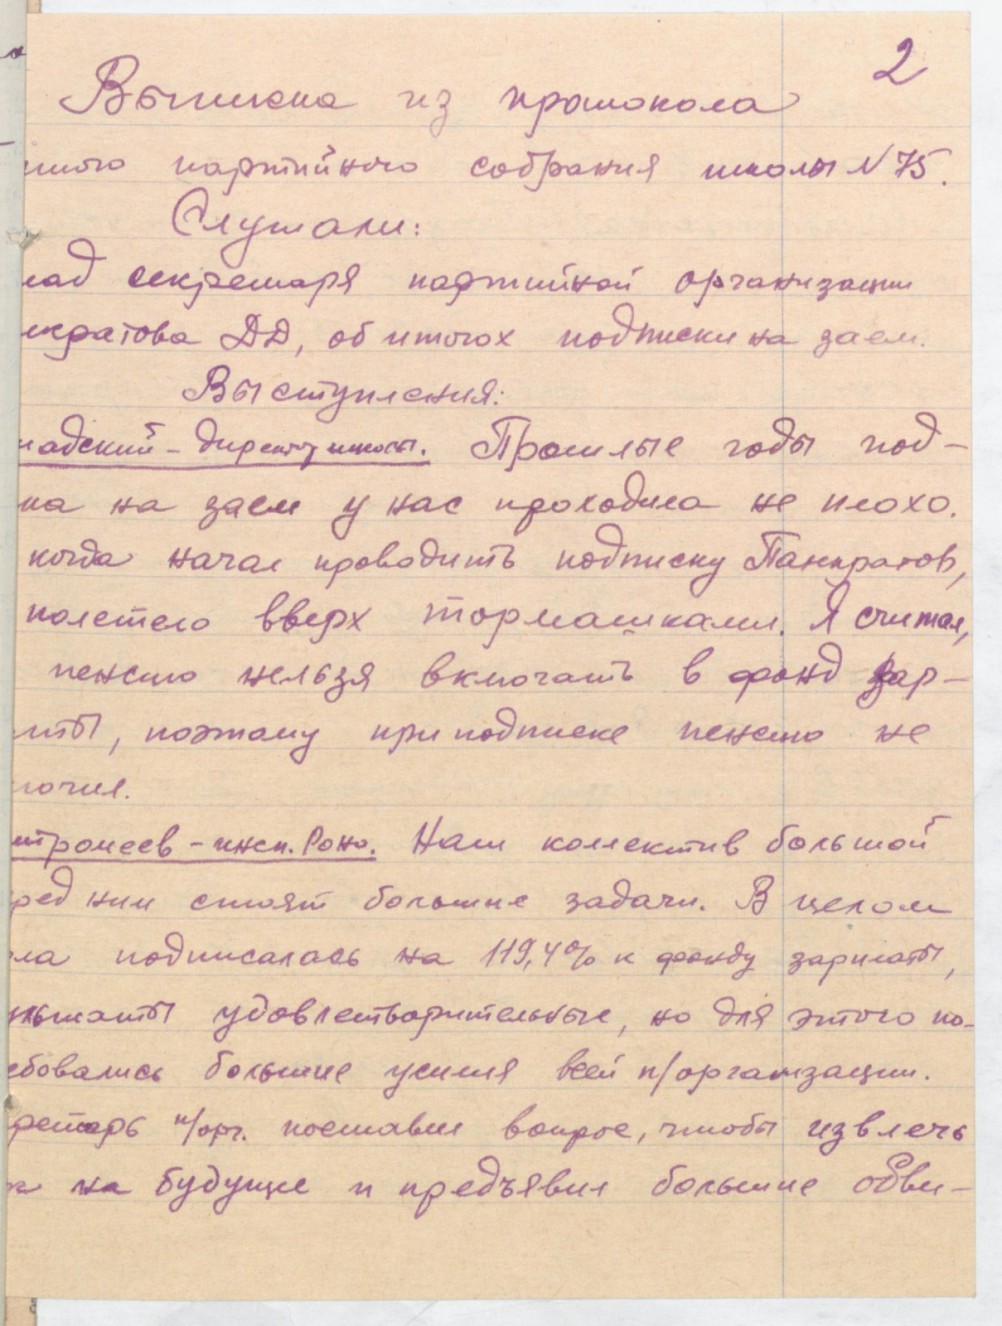 2
Выписка из протокола
партийного собрания школы N 75.
Слушали:
лад секретаря партийной организации
кратова ДД, об итогах подписки на заем.
Выступления:
адский - директ школы. Прошлые годы под-
ка на заем у нас проходила не плохо.
когда начал проводить подписку Панкратов,
полетело вверх тормашками. Я считал,
пенсию нельзя включать в фонд зар-
латы, поэтому при подписке пенсию не
ючил.
- инсп. Роно. Наш коллектив большой
ред ним стоят большие задачи. В целом
ла подписалась на 119,4% к фонду зарплаты,
ультаты удовлетворительные, но для этого по-
ебовались большие усилия всей п/организации.
ретарь п/орг. поставил вопрос, чтобы извлечь
на будущее и предъявил большие обви-